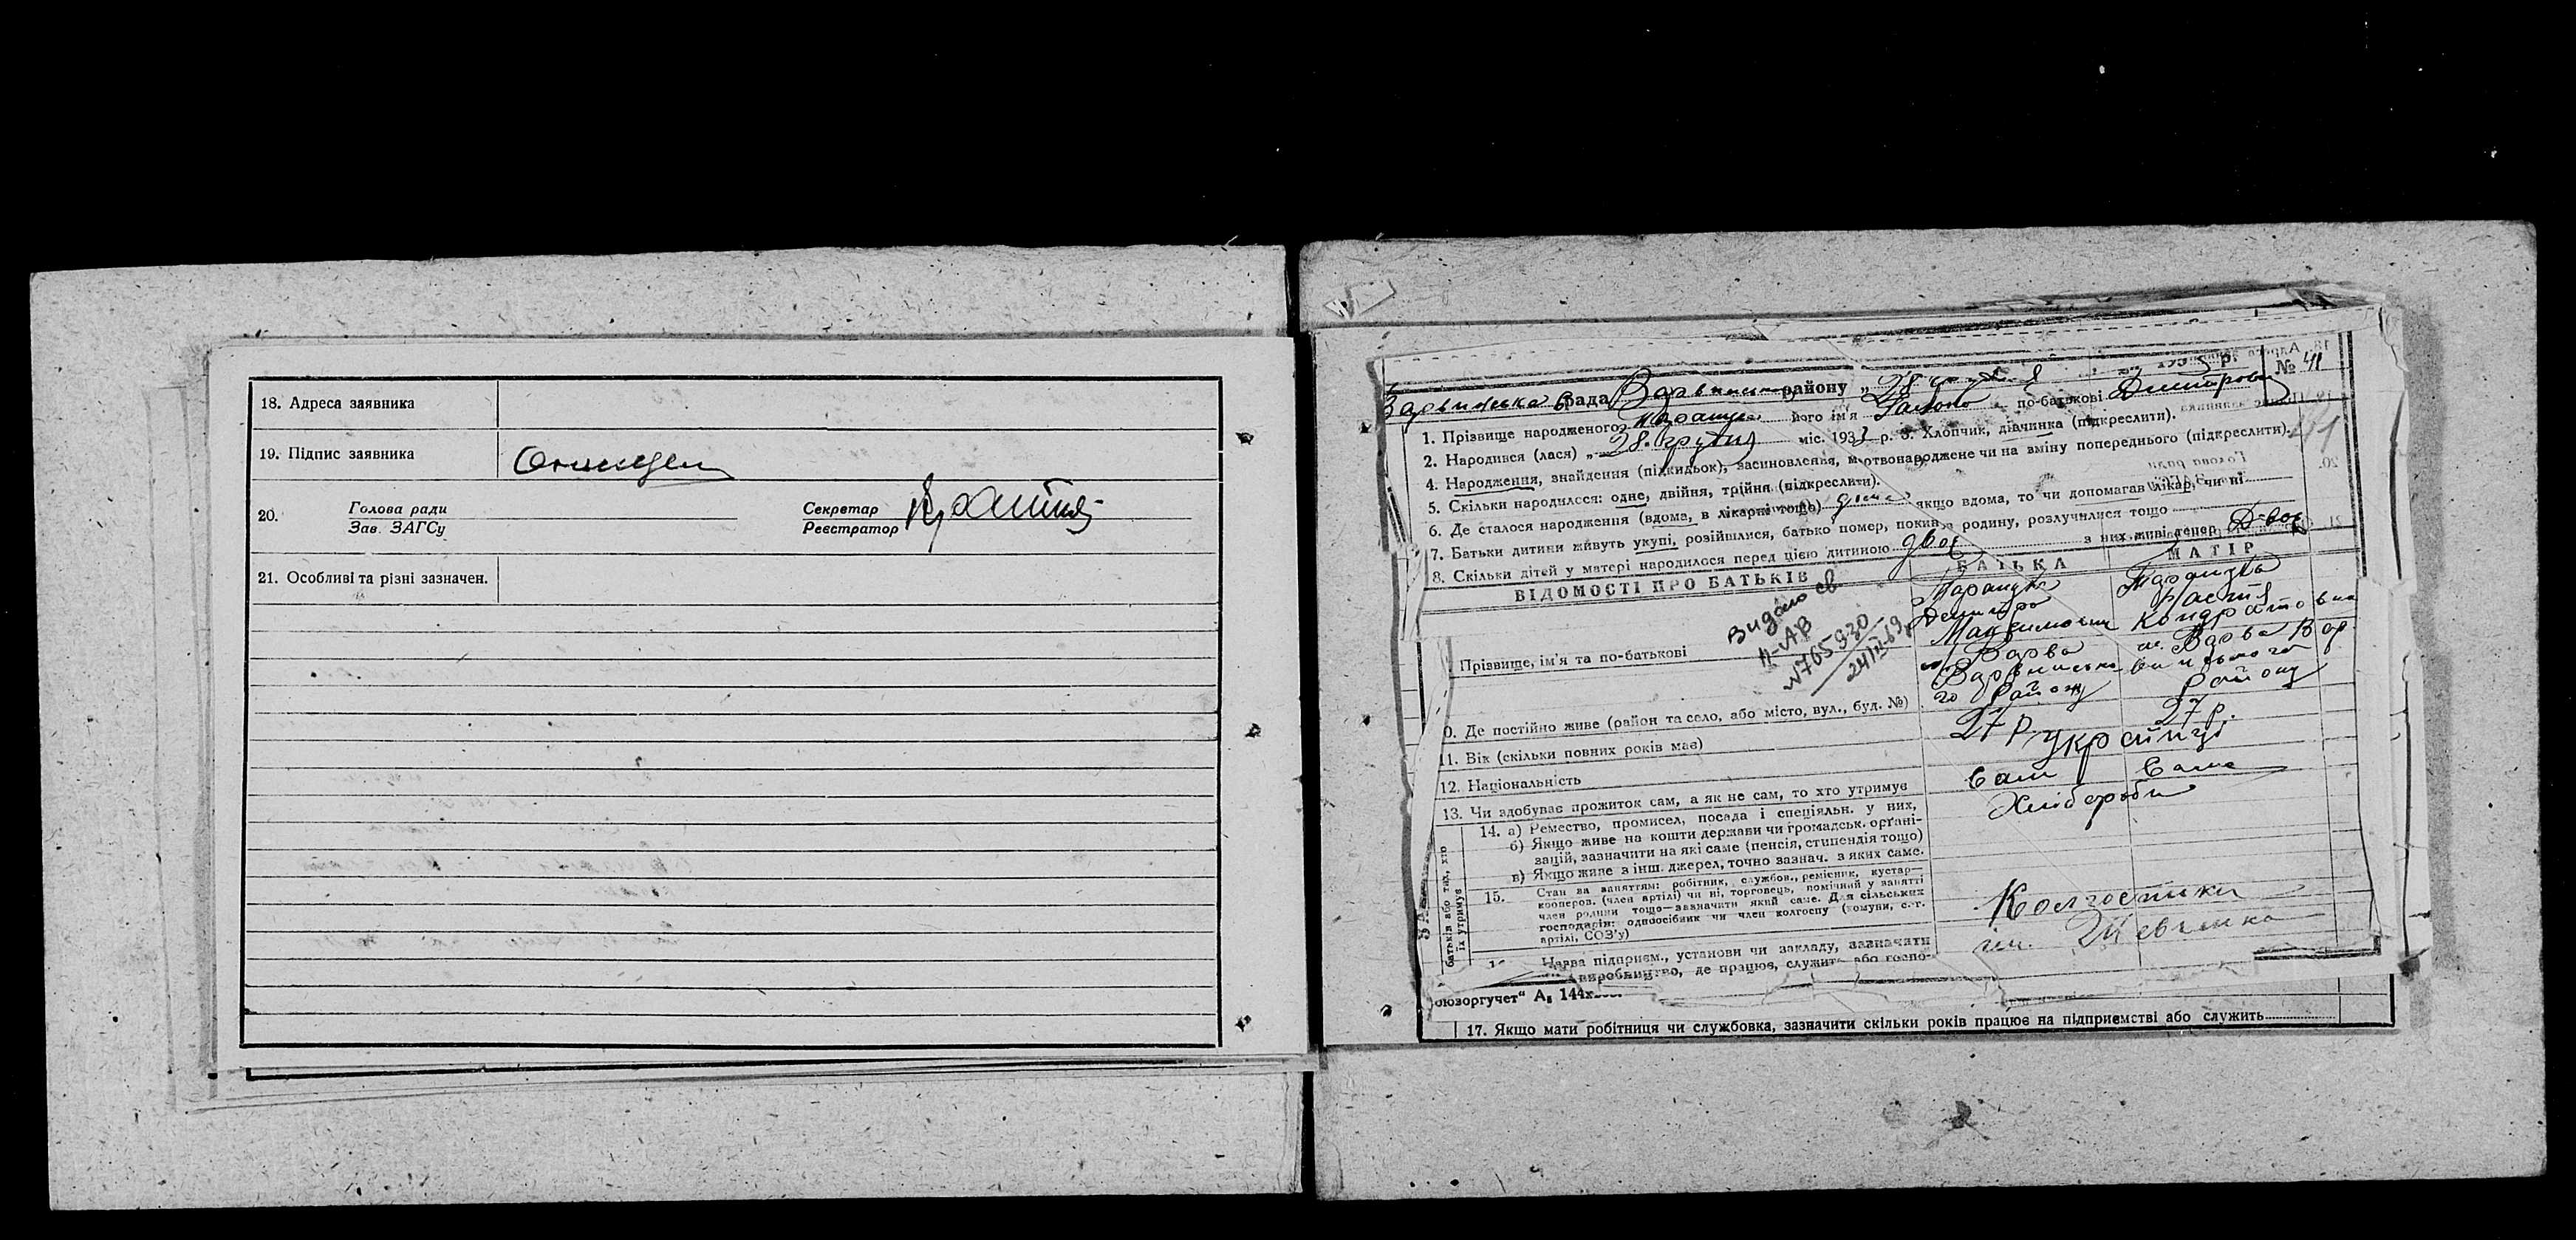 18. Адреса заявника
19. Підпис заявника
20. Голова ради
Зав. ЗАГСу
Секретар
Реєстратор
21. Особливі та різні зазначен.
№ 41
рада району „28
1. Прізвище народженого його ім'я по-батькові
2. Народився (лася) „28. Грудня міс. 1933 р. 3. Хлопчик, дівчинка (підкреслити).
41
4. Народження, знайдення (підкидьок), засиновлення, мертвонароджене чи на зміну попереднього (підкреслити).
5. Скільки народилося: одне, двійня, трійня (підкреслити).
6. Де сталося народження (вдома, в лікарні тощо) дома якщо вдома, то чи допомагав лікар, чи ні
7. Батьки дитини живуть укупі, розійшлися, батько помер, покинв родину, розлучилися тощо
8. Скільки дітей у матері народилося перед цією дитиною двоє з них живі тепер Двоє
ВІДОМОСТІ ПРО БАТЬКІВ
БАТЬКА
МАТІР
Видано св
II-АВ
№765930
Прізвище, ім'я та по-батькові
Дмитро
Максимович
Кондратовна
0. Де постійно живе (район та село, або місто, вул., буд. №)
м. Варва
Варвинсько
го Району
м. Варва Вар
винського
Району
11. Вік (скільки повних років має)
27 р.
27 р.
12. Національність
Українці
13. Чи здобуває прожиток сам, а як не сам, то хто утримує
Сам
Сама
14. а) Ремество, промисел, посада і спеціяльн. у них,
Хлібороби
б) Якщо живе на кошти держави чи громадськ. органі-
зацій, зазначити на які саме (пенсія, стипендія тощо)
в) Якщо живе з інш. джерел, точно зазнач. з яких саме.
батьків або тих, хто
їх утримує
15. Стан за заняттям: робітник, службов., ремісник, кустар—
кооперов. (член артілі) чи ні, торговець, помічний у занятті
член родини тощо—зазначити який саме. Для сільських
господарів: одноосібник чи член колгоспу (комуни, с.-г.
артілі, СОЗ'у)
Колгоспники
Назва підприєм., установи чи закладу, зазначити
виробництво, де працює, служить або госпо-
ім. Шевченка
оюзоргучет“ А₅ 144х
17. Якщо мати робітниця чи службовка, зазначити скільки років працює на підприємстві або служить